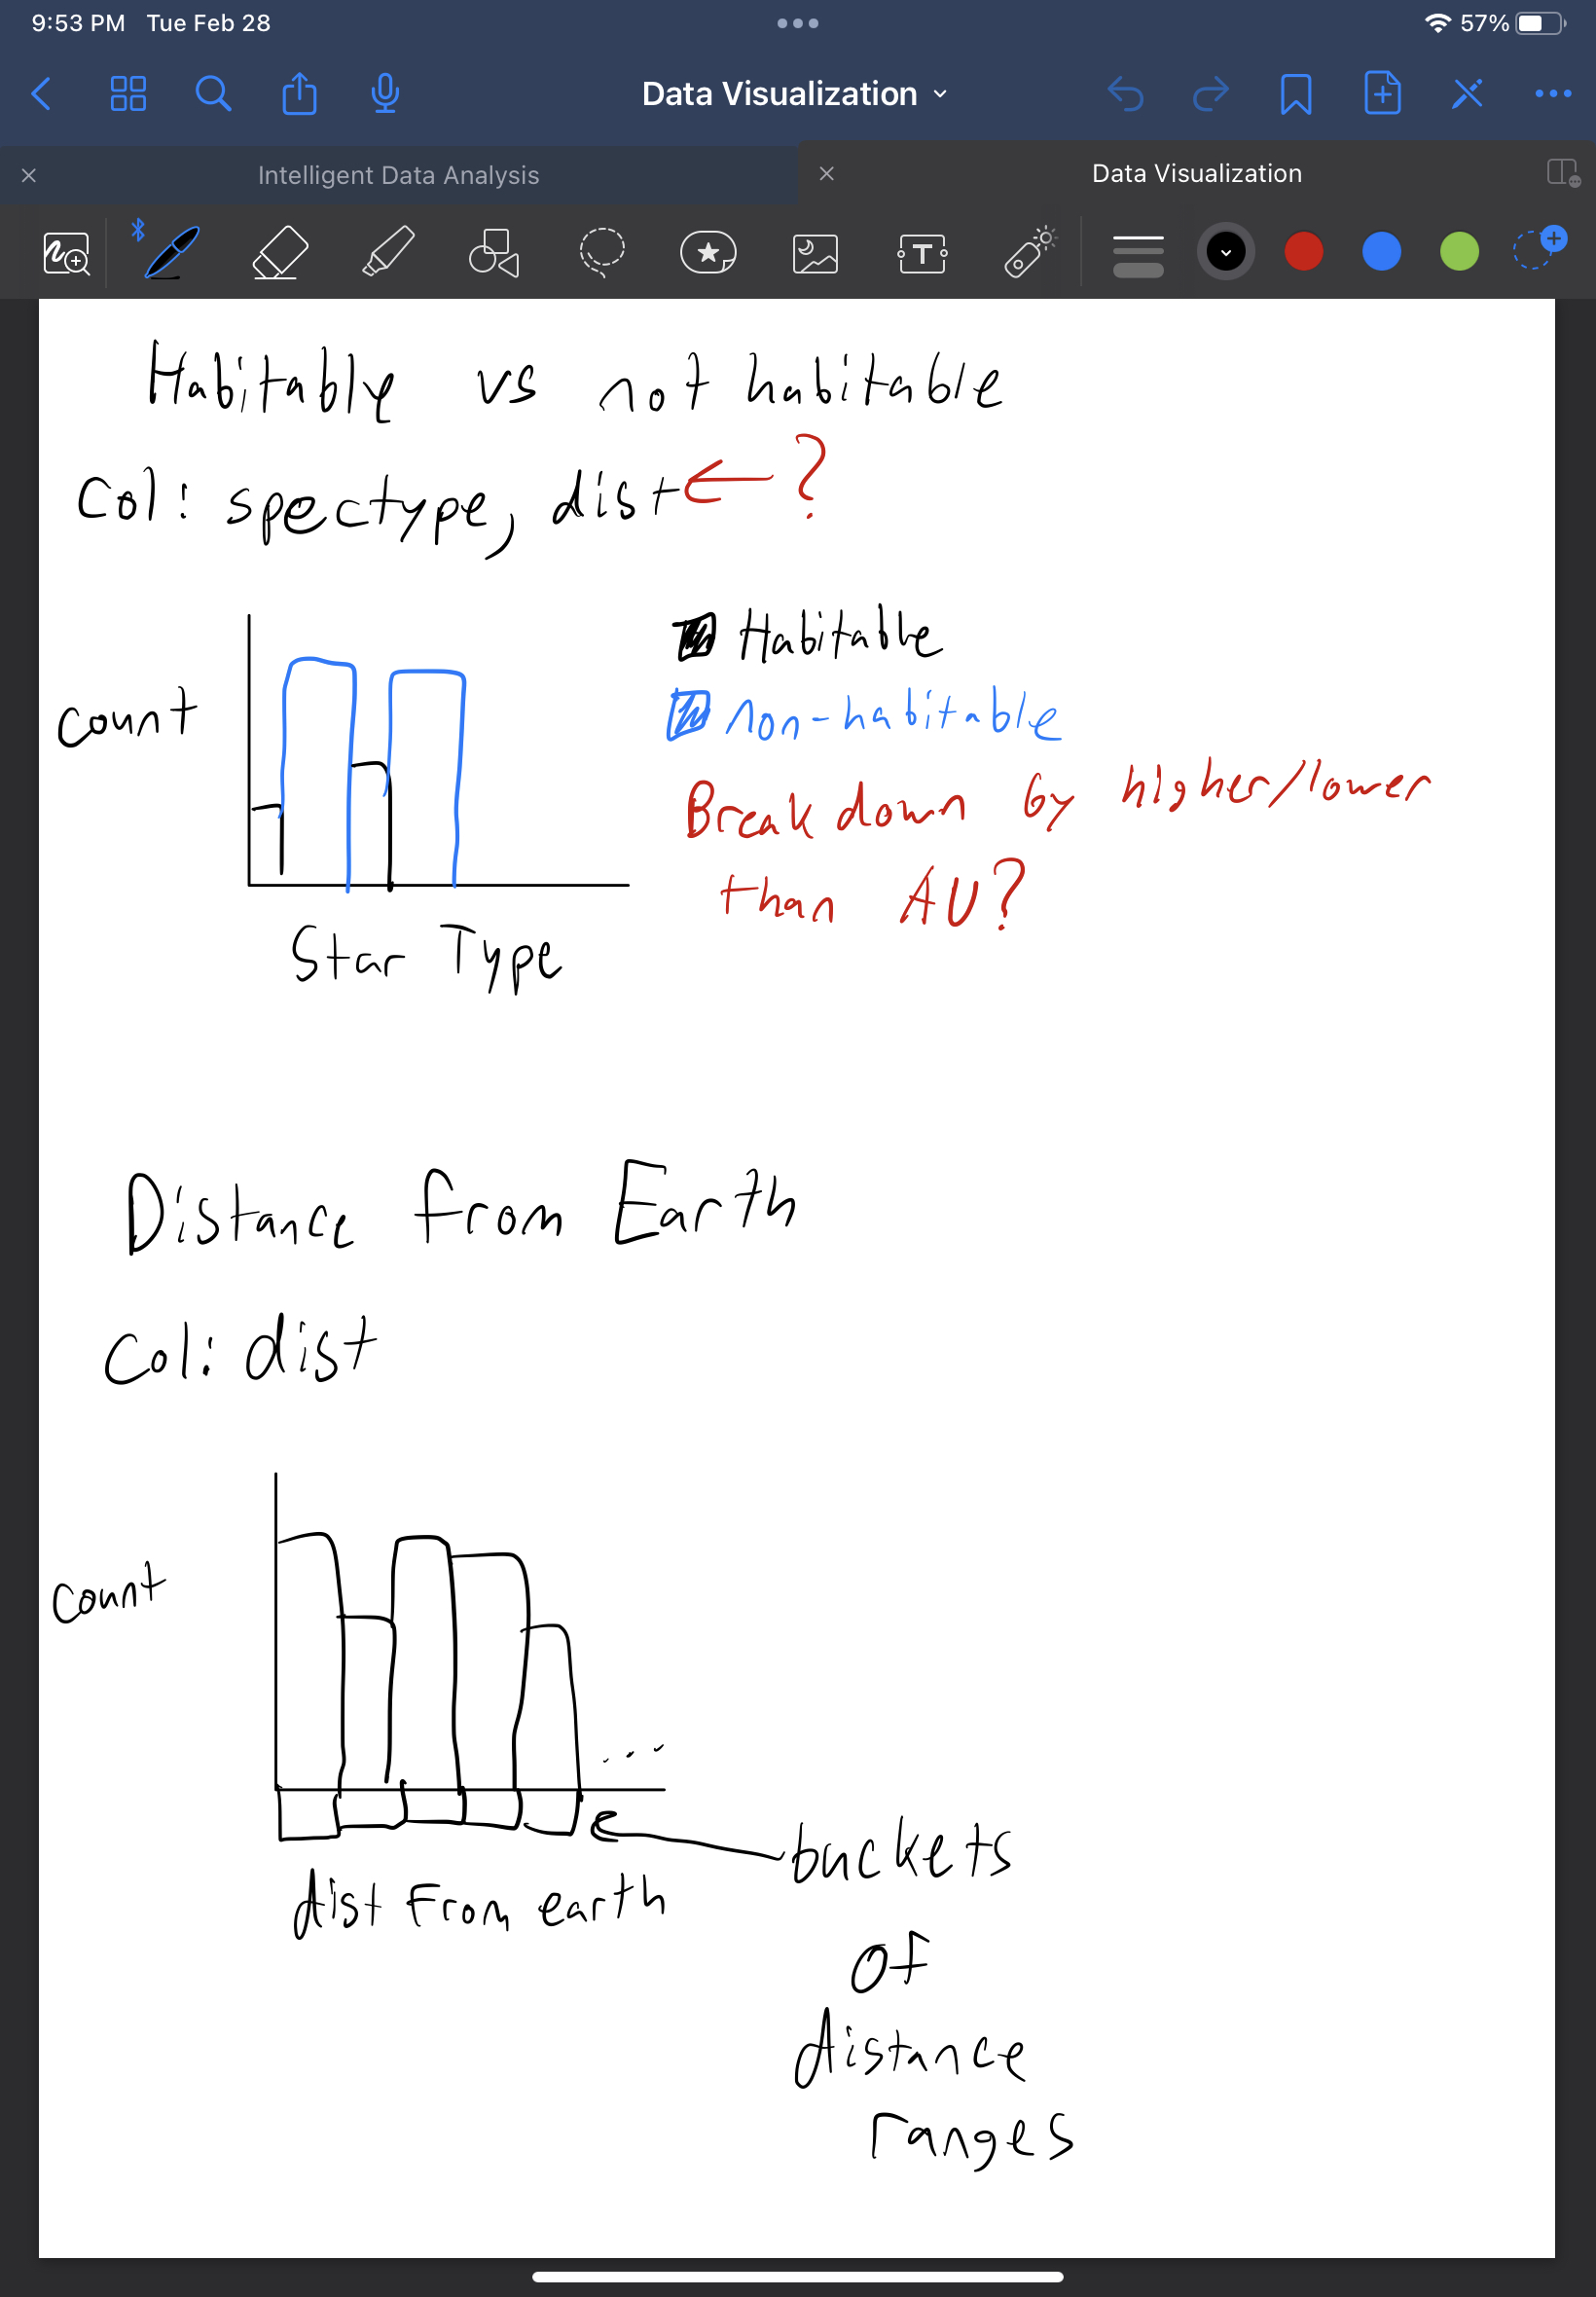 9:53 PM Tue Feb 28
57%
Data Visualization
Intelligent Data Analysis
Data Visualization
T
Habitably vs not habitable
Col: spectype, dist ?
Habitable
count
non-habitable
Breakdown by higher/lower
than AU?
Star Type
Distance from Earth
Col: dist
count
buckets
dist from earth
of
distance
ranges